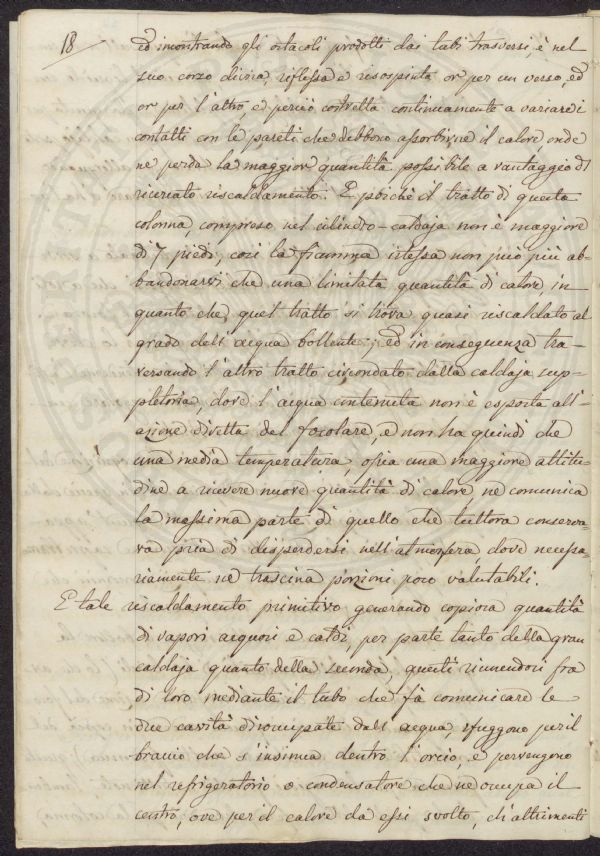 18
ed incontrando gli ostacoli prodotti dai tubi trasversi, è nel
suo corso divisa, riflessa e risospinta or per un verso, ed
or per l'altro, e perciò costretta continuamente a variare i
contatti con le pareti che debbono assorbirne il calore, onde
ne perda la maggior quantità possibile a vantaggio del
ricercato riscaldamento. E poichè il tratto di questa
colonna, compreso nel cilindro-caldaja non è maggiore
di 7 piedi, così la fiamma istessa non può più ab-
bandonarvi che una limitata quantità di calore in
quanto che quel tratto si trova quasi riscaldato al
grado dell'acqua bollente; ed in conseguenza tra-
versando l'altro tratto circondato dalla caldaja sup-
pletoria, dove l'acqua contenuta non è esposta all'-
azione diretta del focolare, e non ha quindi che
una media temperatura, ossia una maggiore attitu-
dine a ricevere nuove quantità di calore ne comunica
la massima parte di quello che tuttora conserva-
va pria di disperdersi nell'atmosfera, dove necessa-
riamente ne trascina porzioni poco valutabili.
E tale riscaldamento primitivo generando copiosa quantità
di vapori acquosi e caldi, per parte tanto della gran
caldaja quanto della seconda, questi riunendosi fra
di loro mediante il tubo che fà comunicare le
due cavità disoccupate dall'acqua, sfuggono per il
braccio che s'insinua dentro l'orcio, e pervengono
nel refrigeratorio o condensatore che ne occupa il
centro, ove per il calore da essi svolto, ch'altrimenti